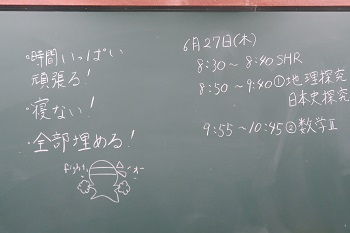 ・時間いっぱい
頑張る!
・寝ない!
・全部埋める!
fight
オー
6月27日(木)
8:30～8:40 SHR
8:50～9:40①地理探究
日本史探究
9:55～10:45②数学Ⅱ